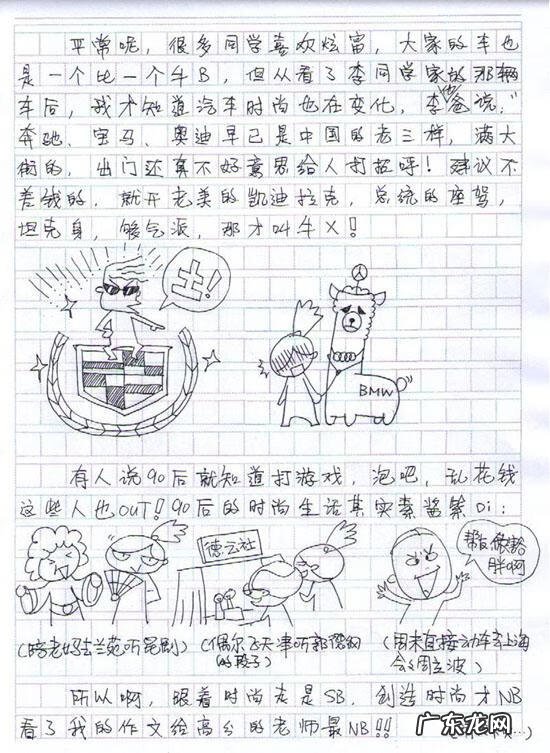 平常呢，很多同学喜欢炫富，大家的车也
是一个比一个牛B，但从看了李同学家的那辆
车后，我才知道汽车时尚也在变化，李他爸说，"
奔驰、宝马、奥迪早已是中国的老三样，满大
街的，出门还真不好意思给人打招呼！建议不
差钱的，就开老美的凯迪拉克，总统的座驾，
坦克身，够气派，那才叫牛X！
土！
BMW
有人说90后就知道打游戏，泡吧，乱花钱
这些人也OUT！90后的时尚生活其实紊酱紫Di：
德云社
帮
胖啊
(陪老妈去兰苑听昆剧)
(偶尔飞天津听郭德纲
的段子)
(周末直接动车去上海
会会周立波)
所以啊，跟着时尚走是SB，创造时尚才NB
看了我的作文给高分的老师最NB!!
广东龙网